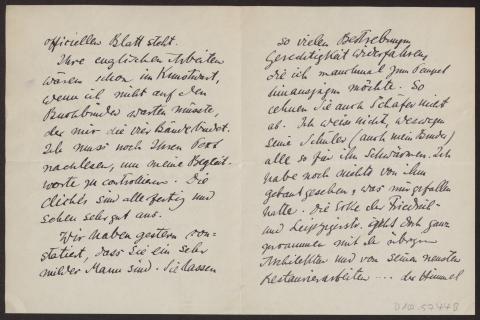 officiellen Blatt steht.
Ihre englischen Arbeiten
wären schon im Kunstwart,
wenn ich nicht auf den
Buchbinder warten müsste,
der mir die vier Bände bindet.
Ich muss noch Ihren Text
nachlesen, um meine Begleit-
worte zu controlliren. Die
Clichés sind alle fertig und
sehen sehr gut aus.
Wir haben gestern con-
statiert, dass Sie ein sehr
milder Mann sind. Sie lassen
so vielen Bestrebungen
Gerechtigkeit widerfahren,
die ich manchmal zum Tempel
hinausjagen möchte. So
lehnen Sie auch Schäfer nicht
ab. Ich weiss nicht, weswegen
seine Schüler (auch mein Bruder)
alle so für ihn schwärmen. Ich
habe noch nichts von ihm
gebaut gesehen, was mir gefallen
hätte. Die Ecke der Friedrich-
und Leipzigerstr. geht doch ganz
zusammen mit den übrigen
Architekten und von seinen neusten
Restaurierarbeiten .... der Himmel